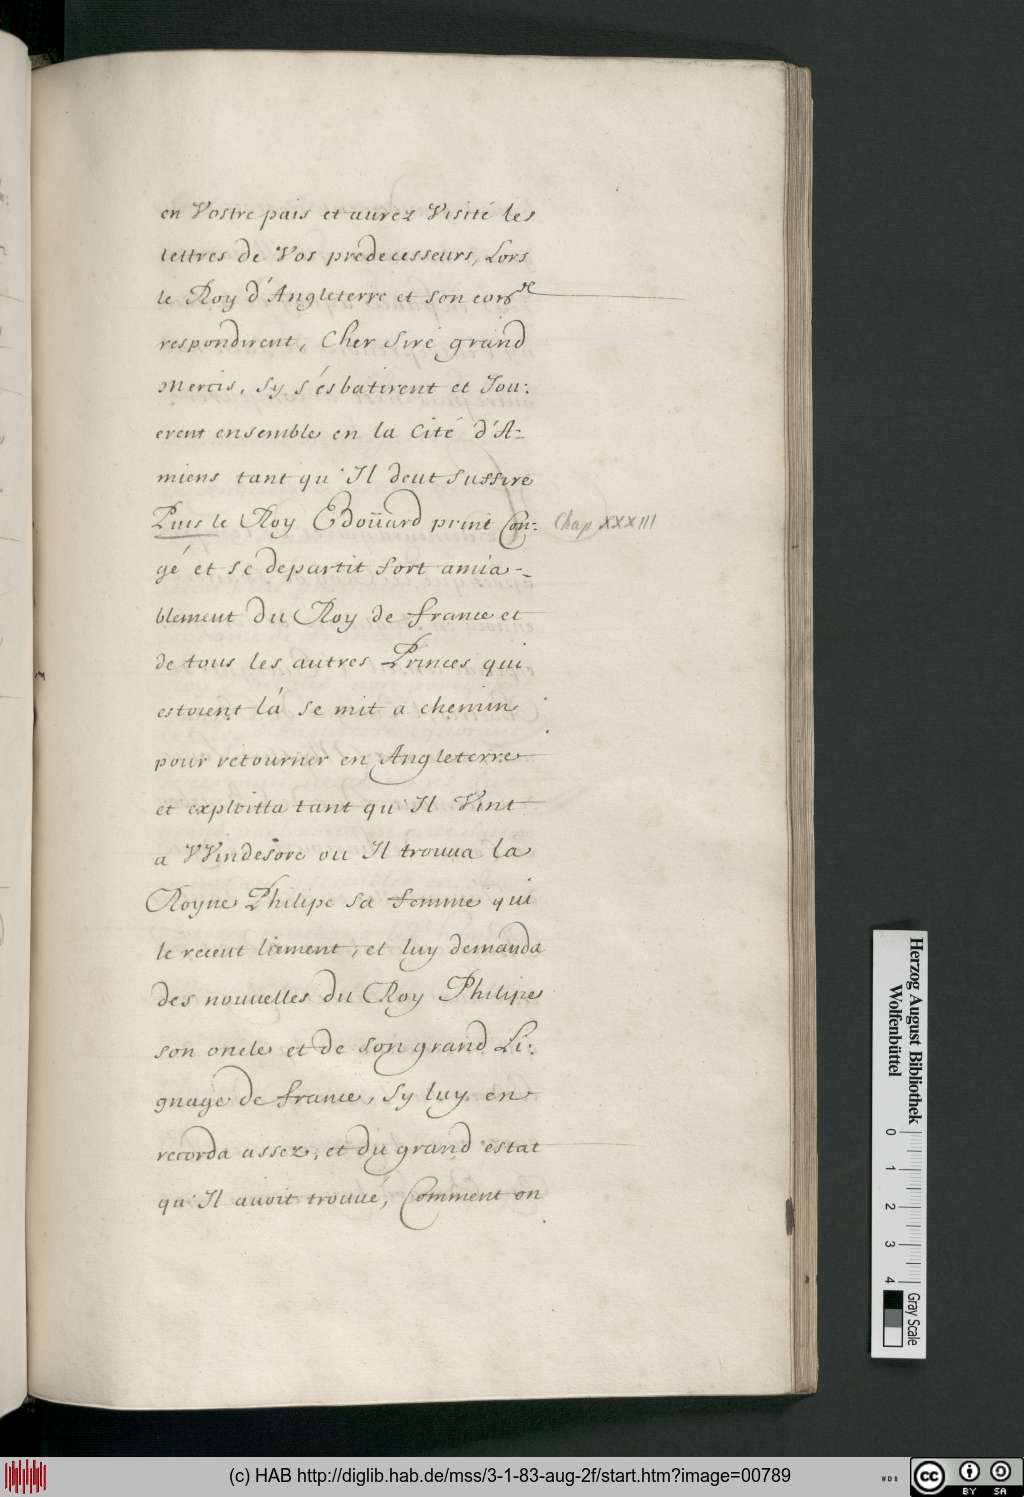 en Vostre pais et aurez Visité les
lettres de Vos predecesseurs, Lors
le Roy d'Angleterre et son
respondirent, Cher Sire grand
Mercis, sy s'ésbatirent et Jou:
erent ensemble en la Cité d'A=
miens tant qu'Il deut suffire
Puis le Roy Edoüard print Con:
Chap XXXIII
gé et se departit fort amia=
blement du Roy de france et
de tous les autres Princes qui
estoient là se mit a chemin
pour retourner en Angleterre
et exploitta tant qu'Il Vint
a VVindesore ou Il trouua la
Royne Philipe sa femme qui
le receut liement, et luy demanda
des nouuelles du Roy Philipe
son oncle et de son grand Li:
gnage de france, sy luy en
recorda assez, et du grand estat
qu'Il auoit trouué, Comment on
Herzog August Bibliothek
Wolfenbüttel
0 1 2 3 4
Gray Scale
(c) HAB http://diglib.hab.de/mss/3-1-83-aug-2f/start.htm?image=00789
WDB
cc BY SA